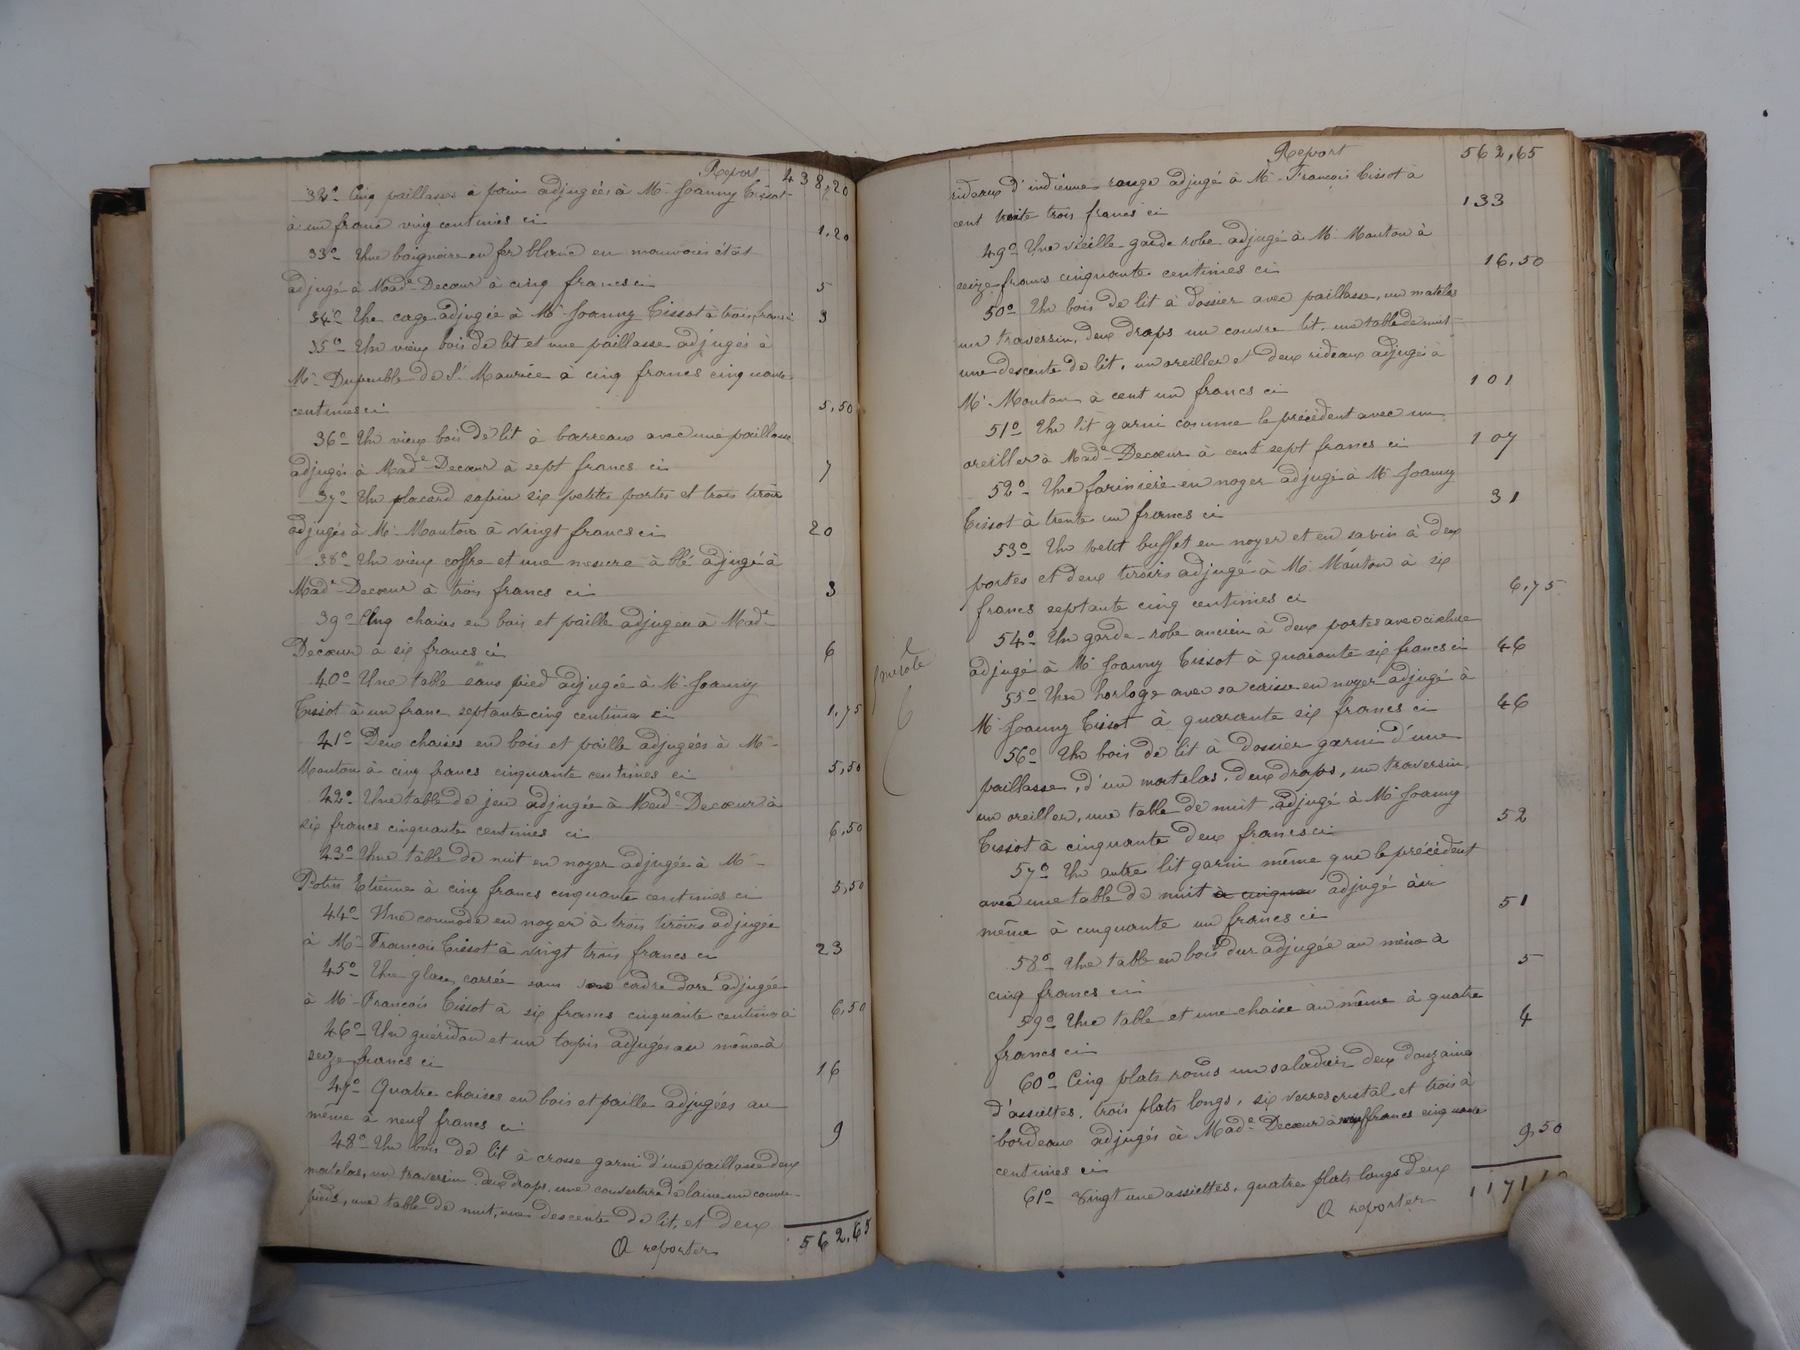 Report 438,20
32º Cinq paillasses à pain adjugées à Mr Joanny Tissot
à un franc vingt centimes ci 1,20
33º Une baignoire en fer blanc en mauvais état
adjugé à Made Decœur à cinq francs ci 5
34º Une cage adjugée à Mr Joanny Tissot à trois francs 3
35º Un vieux bois de lit et une paillasse adjugés à
Mr de St Maurice à cinq francs cinquante
centimes ci 5,50
36º Un vieux bois de lit à barreaux avec une paillasse
adjugés à Made Decœur à sept francs ci 7
37º Un placard sapin six petites portes et trois tiroirs
adjugés à Mr Mouton à vingt francs ci 20
38º Un vieux coffre et une mesure à blé adjugé à
Made Decœur à trois francs ci 3
39º Cinq chaises en bois et paille adjugées à Made
Decœur à six francs ci 6
40º Une table sans pied adjugée à Mr Joanny
Tissot à un franc septante cinq centimes ci 1,75
41º Deux chaises en bois et paille adjugées à Mr
Mouton à cinq francs cinquante centimes ci 5,50
42º Une table de jeu adjugée à Made Decœur à
six francs cinquante centimes ci 6,50
43º Une table de nuit en noyer adjugée à Mr
Potin Etienne à cinq francs cinquante centimes ci 5,50
44º Une commode en noyer à trois tiroirs adjugée
à Mr François Tissot à vingt trois francs ci 23
45º Une glace carrée sans cadre doré adjugée
à Mr François Tissot à six francs cinquante centimes ci 6,50
46º Un guéridon et un tapis adjugés au même à
seize francs ci 16
47º Quatre chaises en bois et paille adjugées au
même à neuf francs ci 9
48º Un bois de lit à crosse garni d'une paillasse deux
matelas, un traversin, deux draps, une couverture de laine un couvre
pieds, une table de nuit, une descente de lit, et deux
A reporter 562,65
Report 562,65
rideaux d'indienne rouge adjugé à Mr François Tissot à
cent trente trois francs ci 133
49º Une vieille garde robe adjugé à Mr Mouton à
seize francs cinquante centimes ci 16,50
50º Un bois de lit à dossier avec paillasse, un matelas
un traversin, deux draps un couvre lit, une table de nuit
une descente de lit, un oreiller et deux rideaux adjugés à
Mr Mouton à cent un francs ci 101
51º Un lit garni comme le précédent avec un
oreiller à Made Decœur à cent sept francs ci 107
52º Une farinière en noyer adjugé à Mr Joanny
Tissot à trente un francs ci 31
53º Un petit buffet en noyer et en sapin à deux
portes et deux tiroirs adjugé à Mr Mouton à six
francs septante cinq centimes ci 6,75
54º Un garde-robe ancien à deux portes avec
adjugé à Mr Joanny Tissot à quarante six francs ci 46
55º Une horloge avec sa caisse en noyer adjugé à
Mr Joanny Tissot à quarante six francs ci 46
56º Un bois de lit à dossier garni d'une
paillasse, d'un matelas, deux draps, un traversin
un oreiller, une table de nuit adjugé à Mr Joanny
Tissot à cinquante deux francs ci 52
57º Un autre lit garni même que le précédent
avec une table de nuit adjugé au
même à cinquante un francs ci 51
58º Une table en bois dur adjugée au même à
cinq francs ci 5
59º Une table et une chaise au même à quatre
francs ci 4
60º Cinq plats ronds un saladier deux douzaines
d'assiettes, trois plats longs, six verres cristal et trois à
bordeaux adjugés à Made Decœur à neuf francs cinquante
centimes ci 9,50
61º Vingt une assiettes, quatre plats longs deux
A reporter